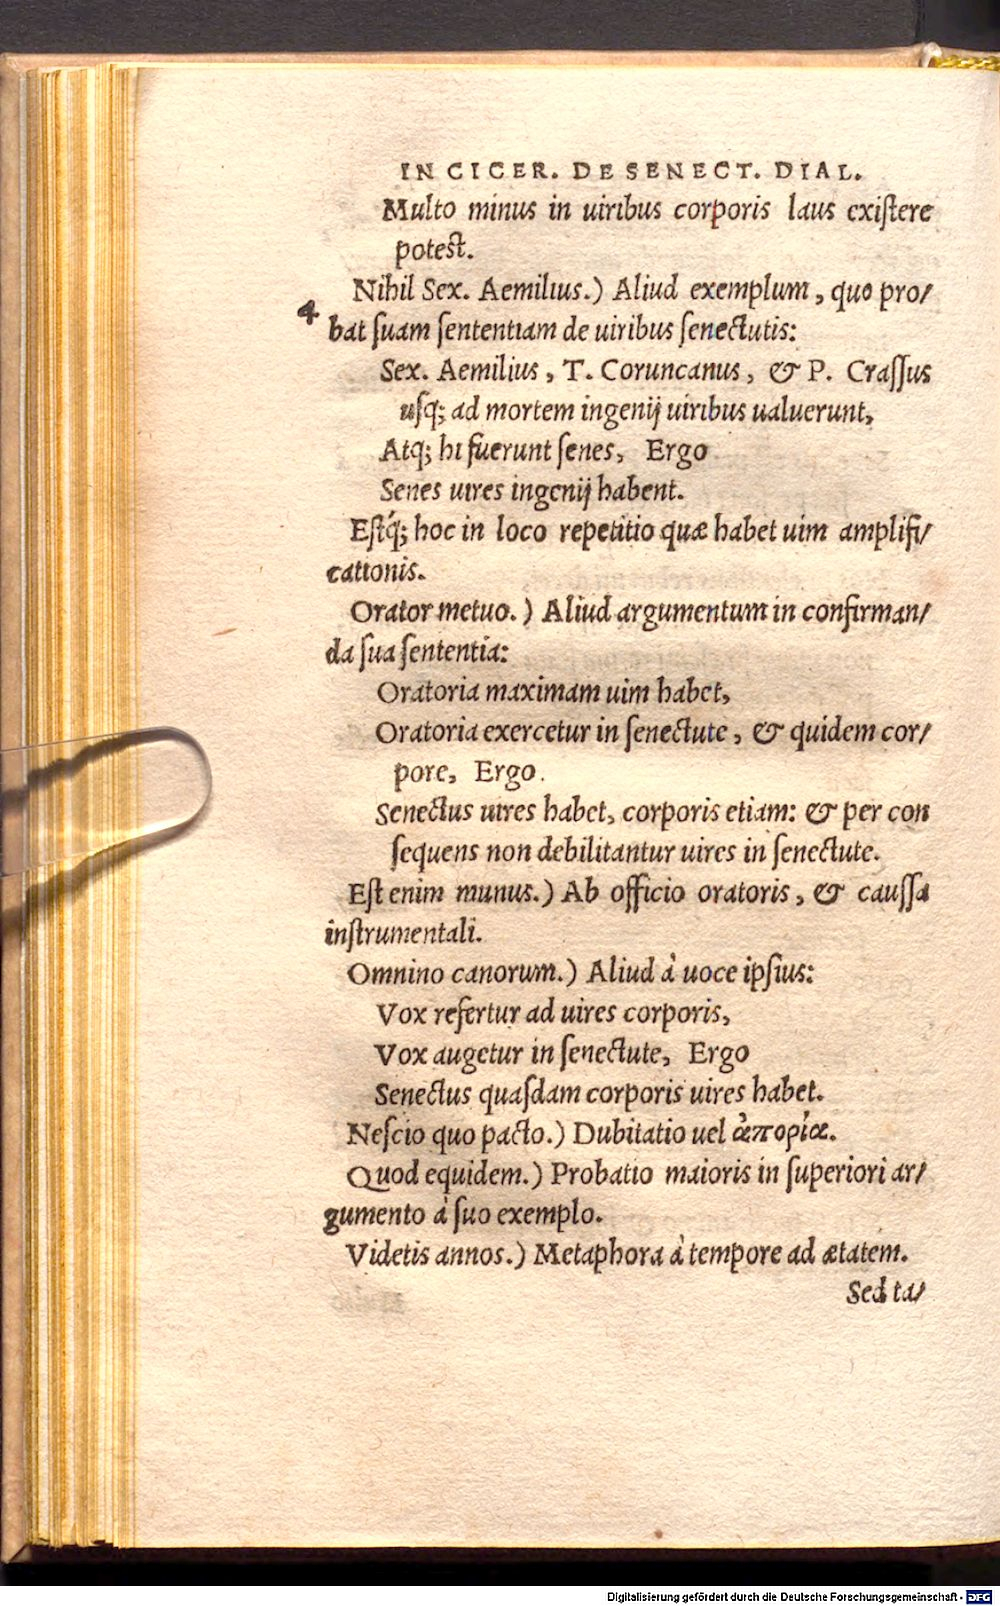 IN CICER. DE SENECT. DIAL.
Multo minus in uiribus corporis laus exiſtere
poteſt.
Nihil Sex. Aemilius.) Aliud exemplum, quo pro/
4
bat ſuam ſententiam de uiribus ſenectutis:
Sex. Aemilius, T. Coruncanus, & P. Craſſus
uſq; ad mortem ingenij uiribus ualuerunt,
Atq; hi fuerunt ſenes, Ergo
Senes uires ingenij habent.
Eſtq́; hoc in loco repetitio quæ habet uim amplifi/
cationis.
Orator metuo.) Aliud argumentum in confirman/
da ſua ſententia:
Oratoria maximam uim habet,
Oratoria exercetur in ſenectute, & quidem cor/
pore, Ergo.
Senectus uires habet, corporis etiam: & per con
ſequens non debilitantur uires in ſenectute.
Eſt enim munus.) Ab officio oratoris, & cauſſa
inſtrumentali.
Omnino canorum.) Aliud à uoce ipſius:
Vox refertur ad uires corporis,
Vox augetur in ſenectute, Ergo
Senectus quaſdam corporis uires habet.
Neſcio quo pacto.) Dubitatio uel ἀπορία.
Quod equidem.) Probatio maioris in ſuperiori ar/
gumento à ſuo exemplo.
Videtis annos.) Metaphora à tempore ad ætatem.
Sed ta/
Digitalisierung gefördert durch die Deutsche Forschungsgemeinschaft - DFG